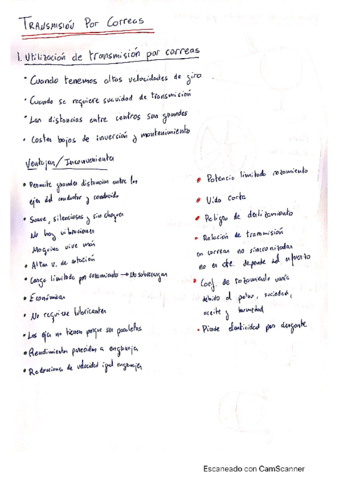 TRANSMISIÓN POR CORREAS
1. Utilización de transmisión por correas
• Cuando tenemos altas velocidades de giro
• Cuando se requiere suavidad de transmisión
• Las distancias entre centros son grandes
• Costes bajos de inversión y mantenimiento
Ventajas / Inconvenientes
• Permite grandes distancias entre los
ejes del conductor y conducido
• Suave, silenciosas y sin choques
No hay vibraciones
Maquina vive más
• Altas v. de rotación
• Carga limitada por rozamiento → No sobrecargas
• Económicas
• No requiere lubricantes
• Los eje no tienen porque ser paralelos
• Rendimientos parecidos a engranaje
• Relaciones de velocidad igual engranajes
• Potencia limitada rozamiento
• Vida corta
• Peligro de deslizamiento
• Relación de transmisión
en correas no sincronizadas
no es cte. depende del esfuerzo
• Coef. de rozamiento varía
debido al polvo, suciedad,
aceite y humedad
• Pierde elasticidad por desgaste
Escaneado con CamScanner